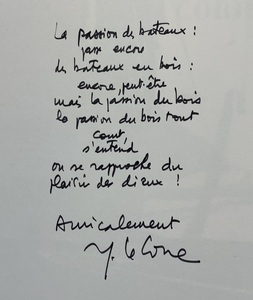 La passion des bateaux :
passe encore
des bateaux en bois :
encore, peut-être
mais la passion du bois
la passion du bois tout
court
s'entend
on se rapproche du
plaisir des dieux !
Amicalement